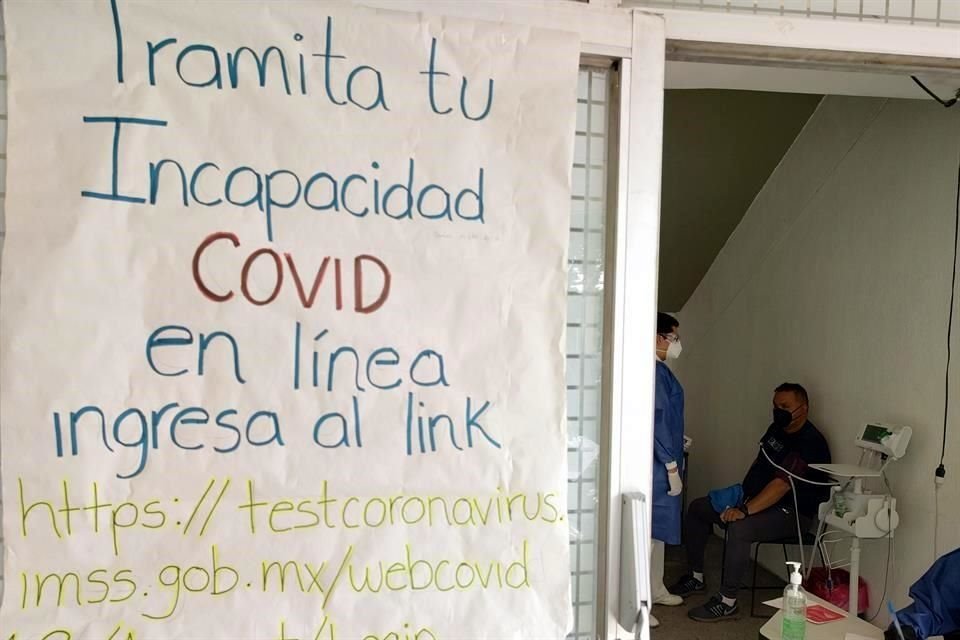 Tramita tu
Incapacidad
COVID
en línea
ingresa al link
https://testcoronavirus.
imss.gob.mx/webcovid